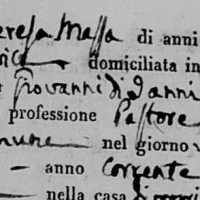 Teresa Massa di anni
domiciliata in
Giovanni di anni
professione Pastore
nel giorno
— anno Corrente
nella casa di